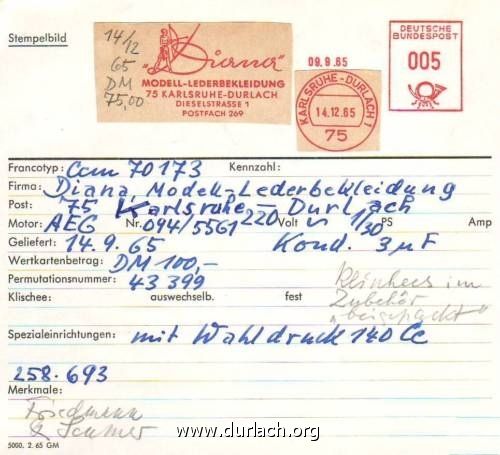 Stempelbild
14/12
65
DM
75,00
"Diana"
MODELL-LEDERBEKLEIDUNG
75 KARLSRUHE-DURLACH
DIESELSTRASSE 1
POSTFACH 269
09.9.65
KARLSRUHE-DURLACH 1
14.12.65
75
DEUTSCHE
BUNDESPOST
005
Francotyp: Ccm 70173 Kennzahl:
Firma: Diana, Modell-Lederbekleidung
Post: 75 Karlsruhe - Durlach
Motor: AEG Nr. 094/5561 220 Volt ~ 1/30 PS Amp
Geliefert: 14.9.65 Kond. 3 µF
Wertkartenbetrag: DM 100,-
Permutationsnummer: 43 399
Klischee: auswechselb. fest
im
Zubehör
"beigepackt"
Spezialeinrichtungen: mit Wahldruck 140 Cc
258.693
Merkmale:
Friedmann
&
www.durlach.org
5000. 2. 65 GM